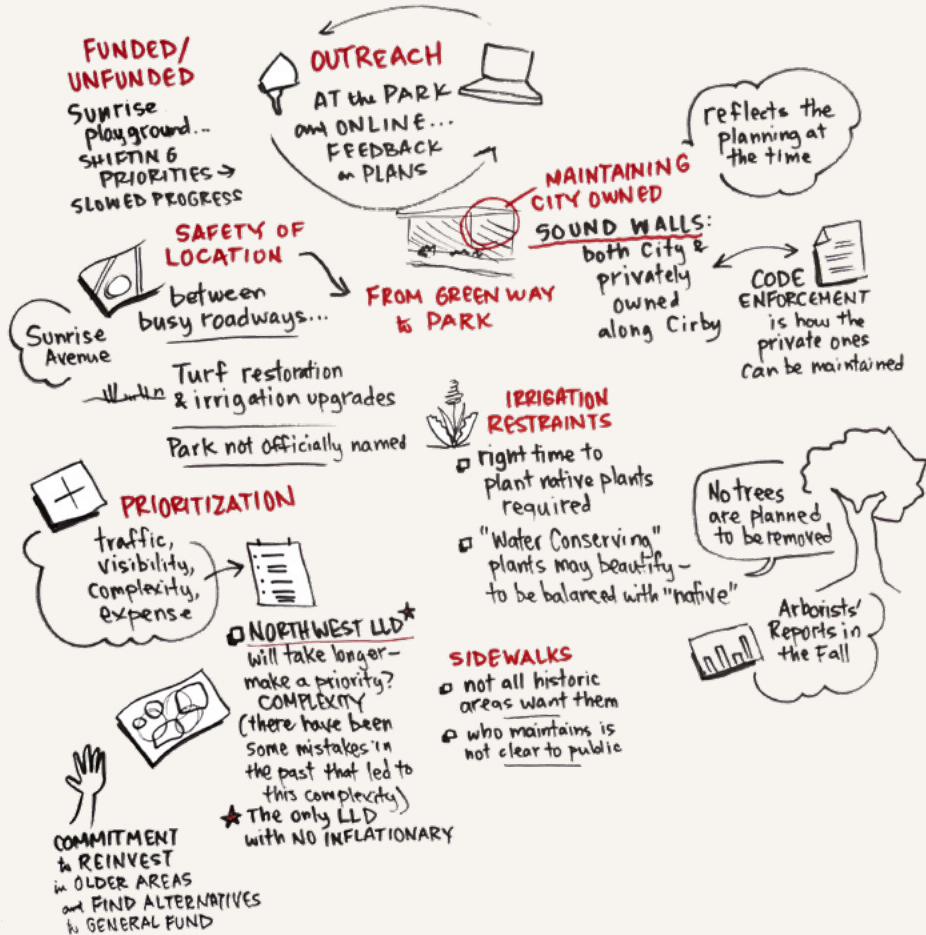 FUNDED/
UNFUNDED
Sunrise
playground...
SHIFTING
PRIORITIES →
SLOWED PROGRESS
OUTREACH
AT the PARK
and ONLINE...
FEEDBACK
on PLANS
MAINTAINING
CITY OWNED
SOUND WALLS:
both City &
privately
owned
along Cirby
reflects the
planning at
the time
CODE
ENFORCEMENT
is how the
private ones
can be maintained
SAFETY OF
LOCATION
between
busy roadways...
Sunrise
Avenue
FROM GREENWAY
to PARK
Turf restoration
& irrigation upgrades
Park not officially named
IRRIGATION
RESTRAINTS
right time to
plant native plants
required
"Water Conserving"
plants may beautify-
to be balanced with "native"
No trees
are planned
to be removed
Arborists'
Reports in
the Fall
PRIORITIZATION
traffic,
visibility,
complexity,
expense
NORTHWEST LLD★
will take longer-
make a priority?
COMPLEXITY
(there have been
some mistakes in
the past that led to
this complexity)
★ The only LLD
with NO INFLATIONARY
SIDEWALKS
not all historic
areas want them
who maintains is
not clear to public
COMMITMENT
to REINVEST
in OLDER AREAS
and FIND ALTERNATIVES
to GENERAL FUND